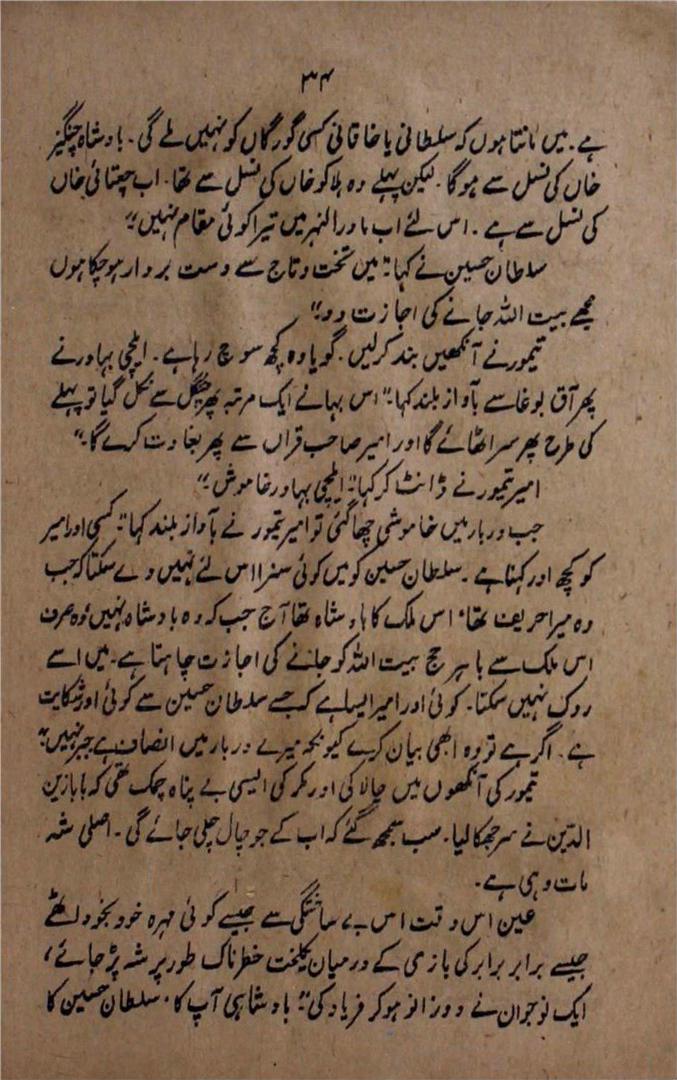 ۳۴
ہے۔ میں مانتا ہوں کہ سلطانی یا خاقانی کسی گورگاں کو نہیں ملے گی۔ بادشاہ چنگیز
خاں کی نسل سے ہوگا۔ لیکن پہلے وہ ہلاکو خاں کی نسل سے تھا۔ اب چغتائی خاں
کی نسل سے ہے۔ اس لئے اب ماورالنہر میں تیرا کوئی مقام نہیں"
سلطان حسین نے کہا: "میں تخت و تاج سے دست بردار ہوچکا ہوں
مجھے بیت اللہ جانے کی اجازت دو۔"
تیمور نے آنکھیں بند کرلیں۔ گویا وہ کچھ سوچ رہا ہے۔ ایلچی بہادر نے
پھر آق بوغا سے بآواز بلند کہا: "اس بہانے ایک مرتبہ پھر چنگل سے نکل گیا تو پہلے
کی طرح پھر سر اٹھائے گا اور امیر صاحب قراں سے پھر بغاوت کرے گا۔"
امیر تیمور نے ڈانٹ کر کہا: "ایلچی بہادر خاموش۔"
جب دربار میں خاموشی چھا گئی تو امیر تیمور نے بآواز بلند کہا: "کسی اور امیر
کو کچھ اور کہنا ہے۔ سلطان حسین کو میں کوئی سزا اس لئے نہیں دے سکتا کہ جب
وہ میرا حریف تھا، اس ملک کا بادشاہ تھا آج جب کہ وہ بادشاہ نہیں، وہ صرف
اس ملک سے باہر حج بیت اللہ کو جانے کی اجازت چاہتا ہے۔ میں اسے
روک نہیں سکتا۔ کوئی اور امیر ایسا ہے کہ جسے سلطان حسین سے کوئی اور شکایت
ہے۔ اگر ہے تو وہ ابھی بیان کرے کیونکہ میرے دربار میں انصاف ہے جبر نہیں"
تیمور کی آنکھوں میں چالاکی اور مکر کی ایسی بے پناہ چمک تھی کہ بابا زین
الدین نے سر جھکا لیا۔ سب سمجھ گئے کہ اب کے جو چال چلی جائے گی۔ اصلی شہ
مات وہی ہے۔
عین اس وقت اس بے ساختگی سے جیسے کوئی مہرہ خود بخود اٹھے
جیسے برابر برابر کی بازی کے درمیان یکلخت خطرناک طور پر شہ پڑ جائے،
ایک نوجوان نے دو زانو ہو کر فریاد کی: "بادشاہی آپ کا، سلطان حسین کا